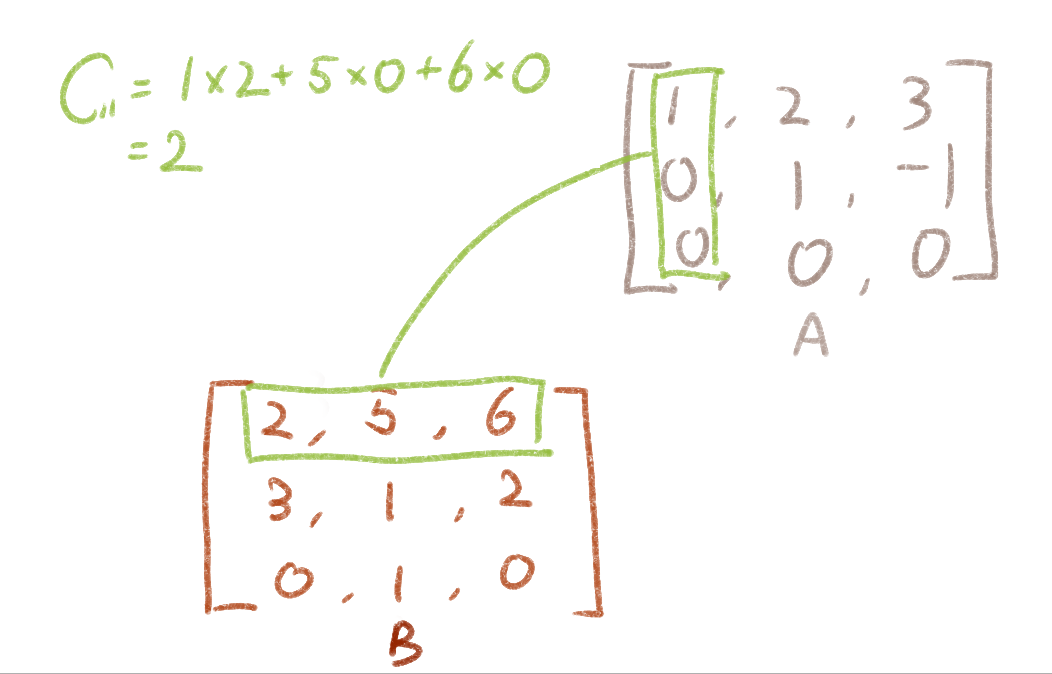 C₁₁ = 1×2+5×0+6×0
=2
1, 2, 3
0, 1, -1
0, 0, 0
A
2, 5, 6
3, 1, 2
0, 1, 0
B